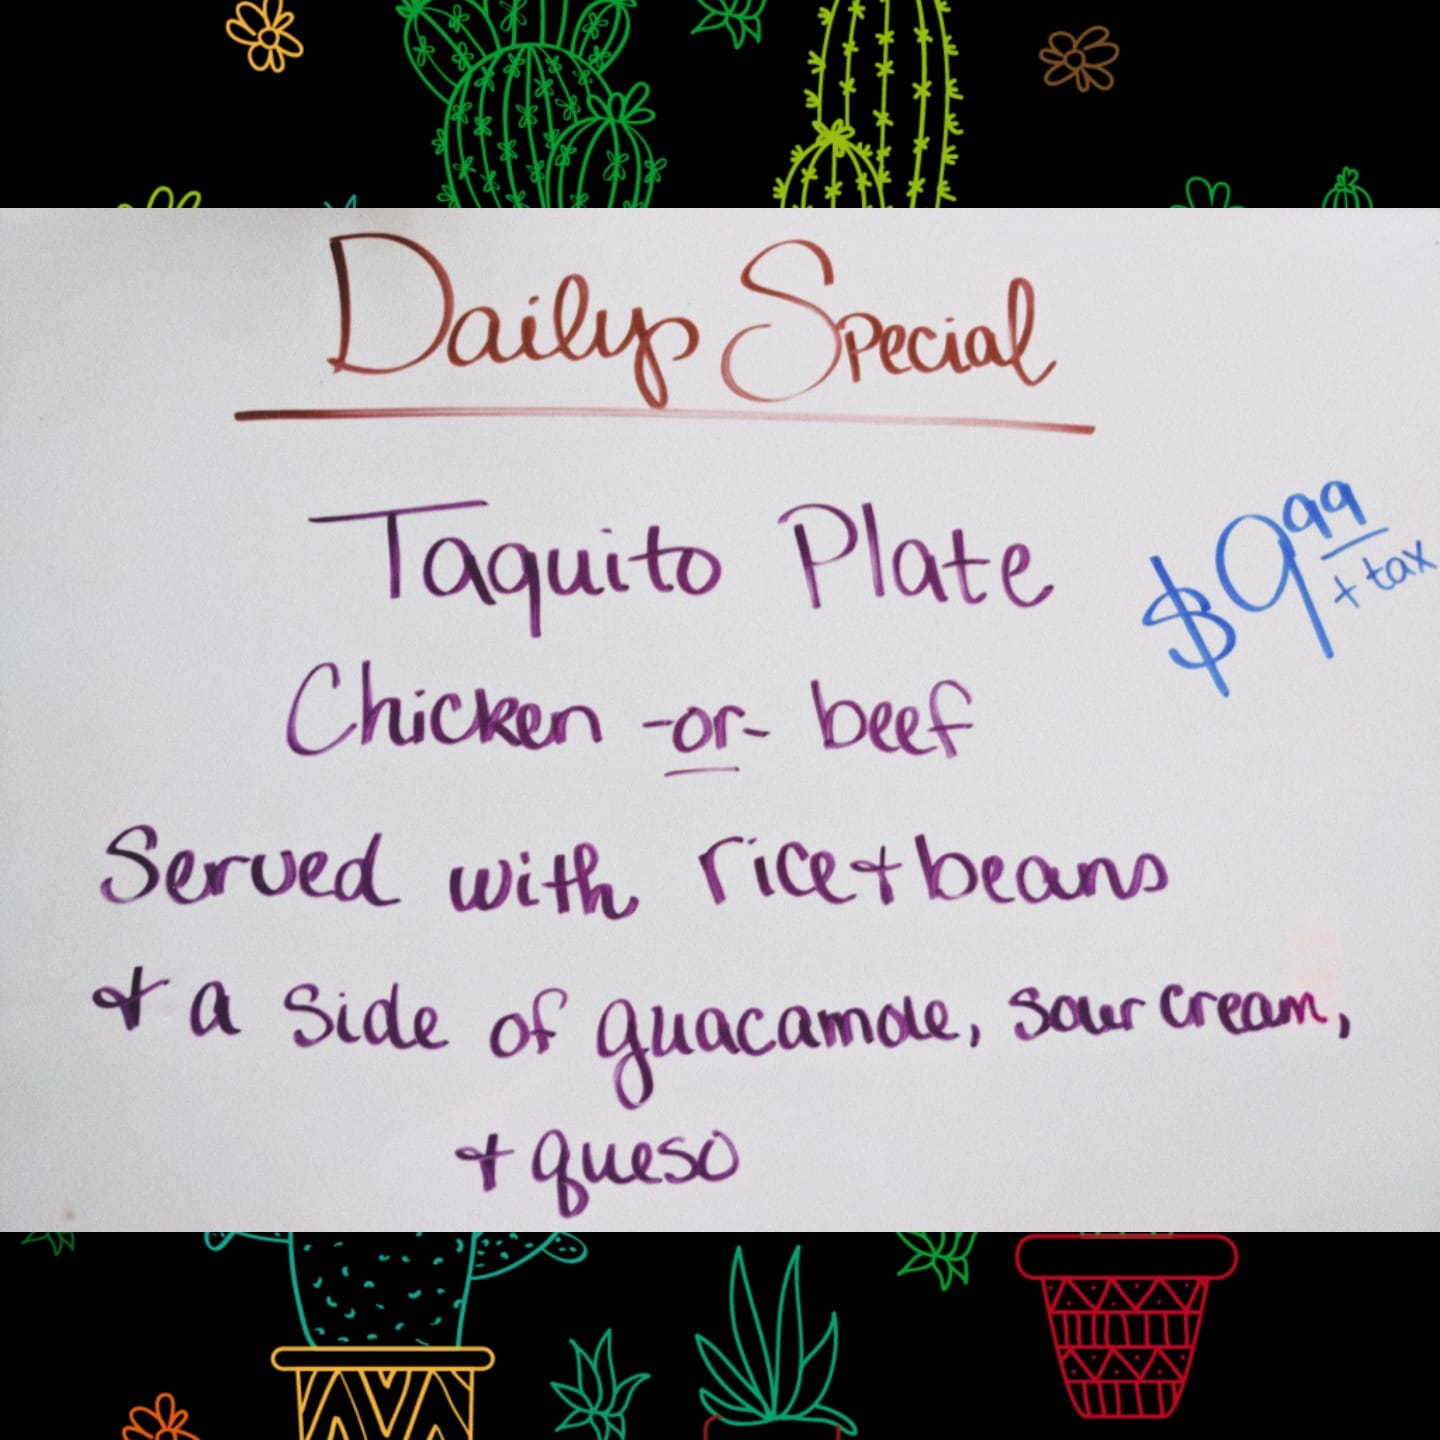 Daily Special
Taquito Plate
$9.99
+ tax
Chicken -or- beef
Served with rice + beans
+ a side of guacamole, sour cream,
+ queso